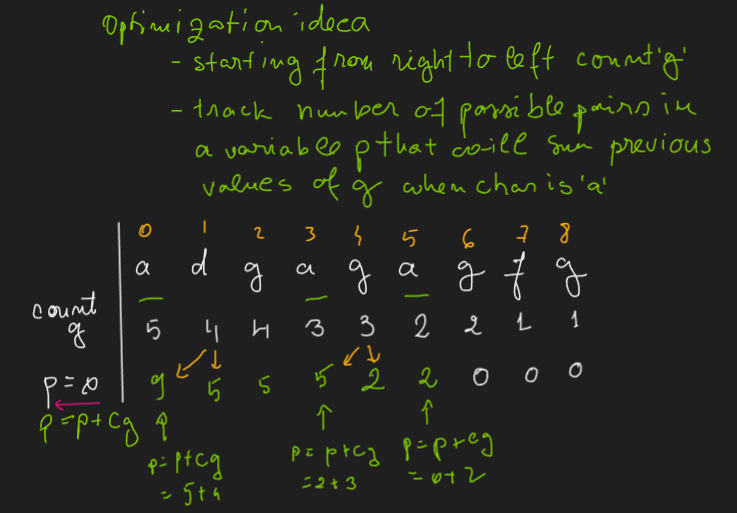 Optimization ideea
- starting from right to left count 'g'
- track number of possible pairs in
a variable p that will sum previous
values of g when char is 'a'
0 1 2 3 4 5 6 7 8
a d g a g a g f g
count g 5 4 4 3 3 2 2 1 1
p = 0 9 5 5 5 2 2 0 0 0
p = p + cg
p = p + cg
= 5 + 4
p = p + cg
= 2 + 3
p = p + cg
= 0 + 2